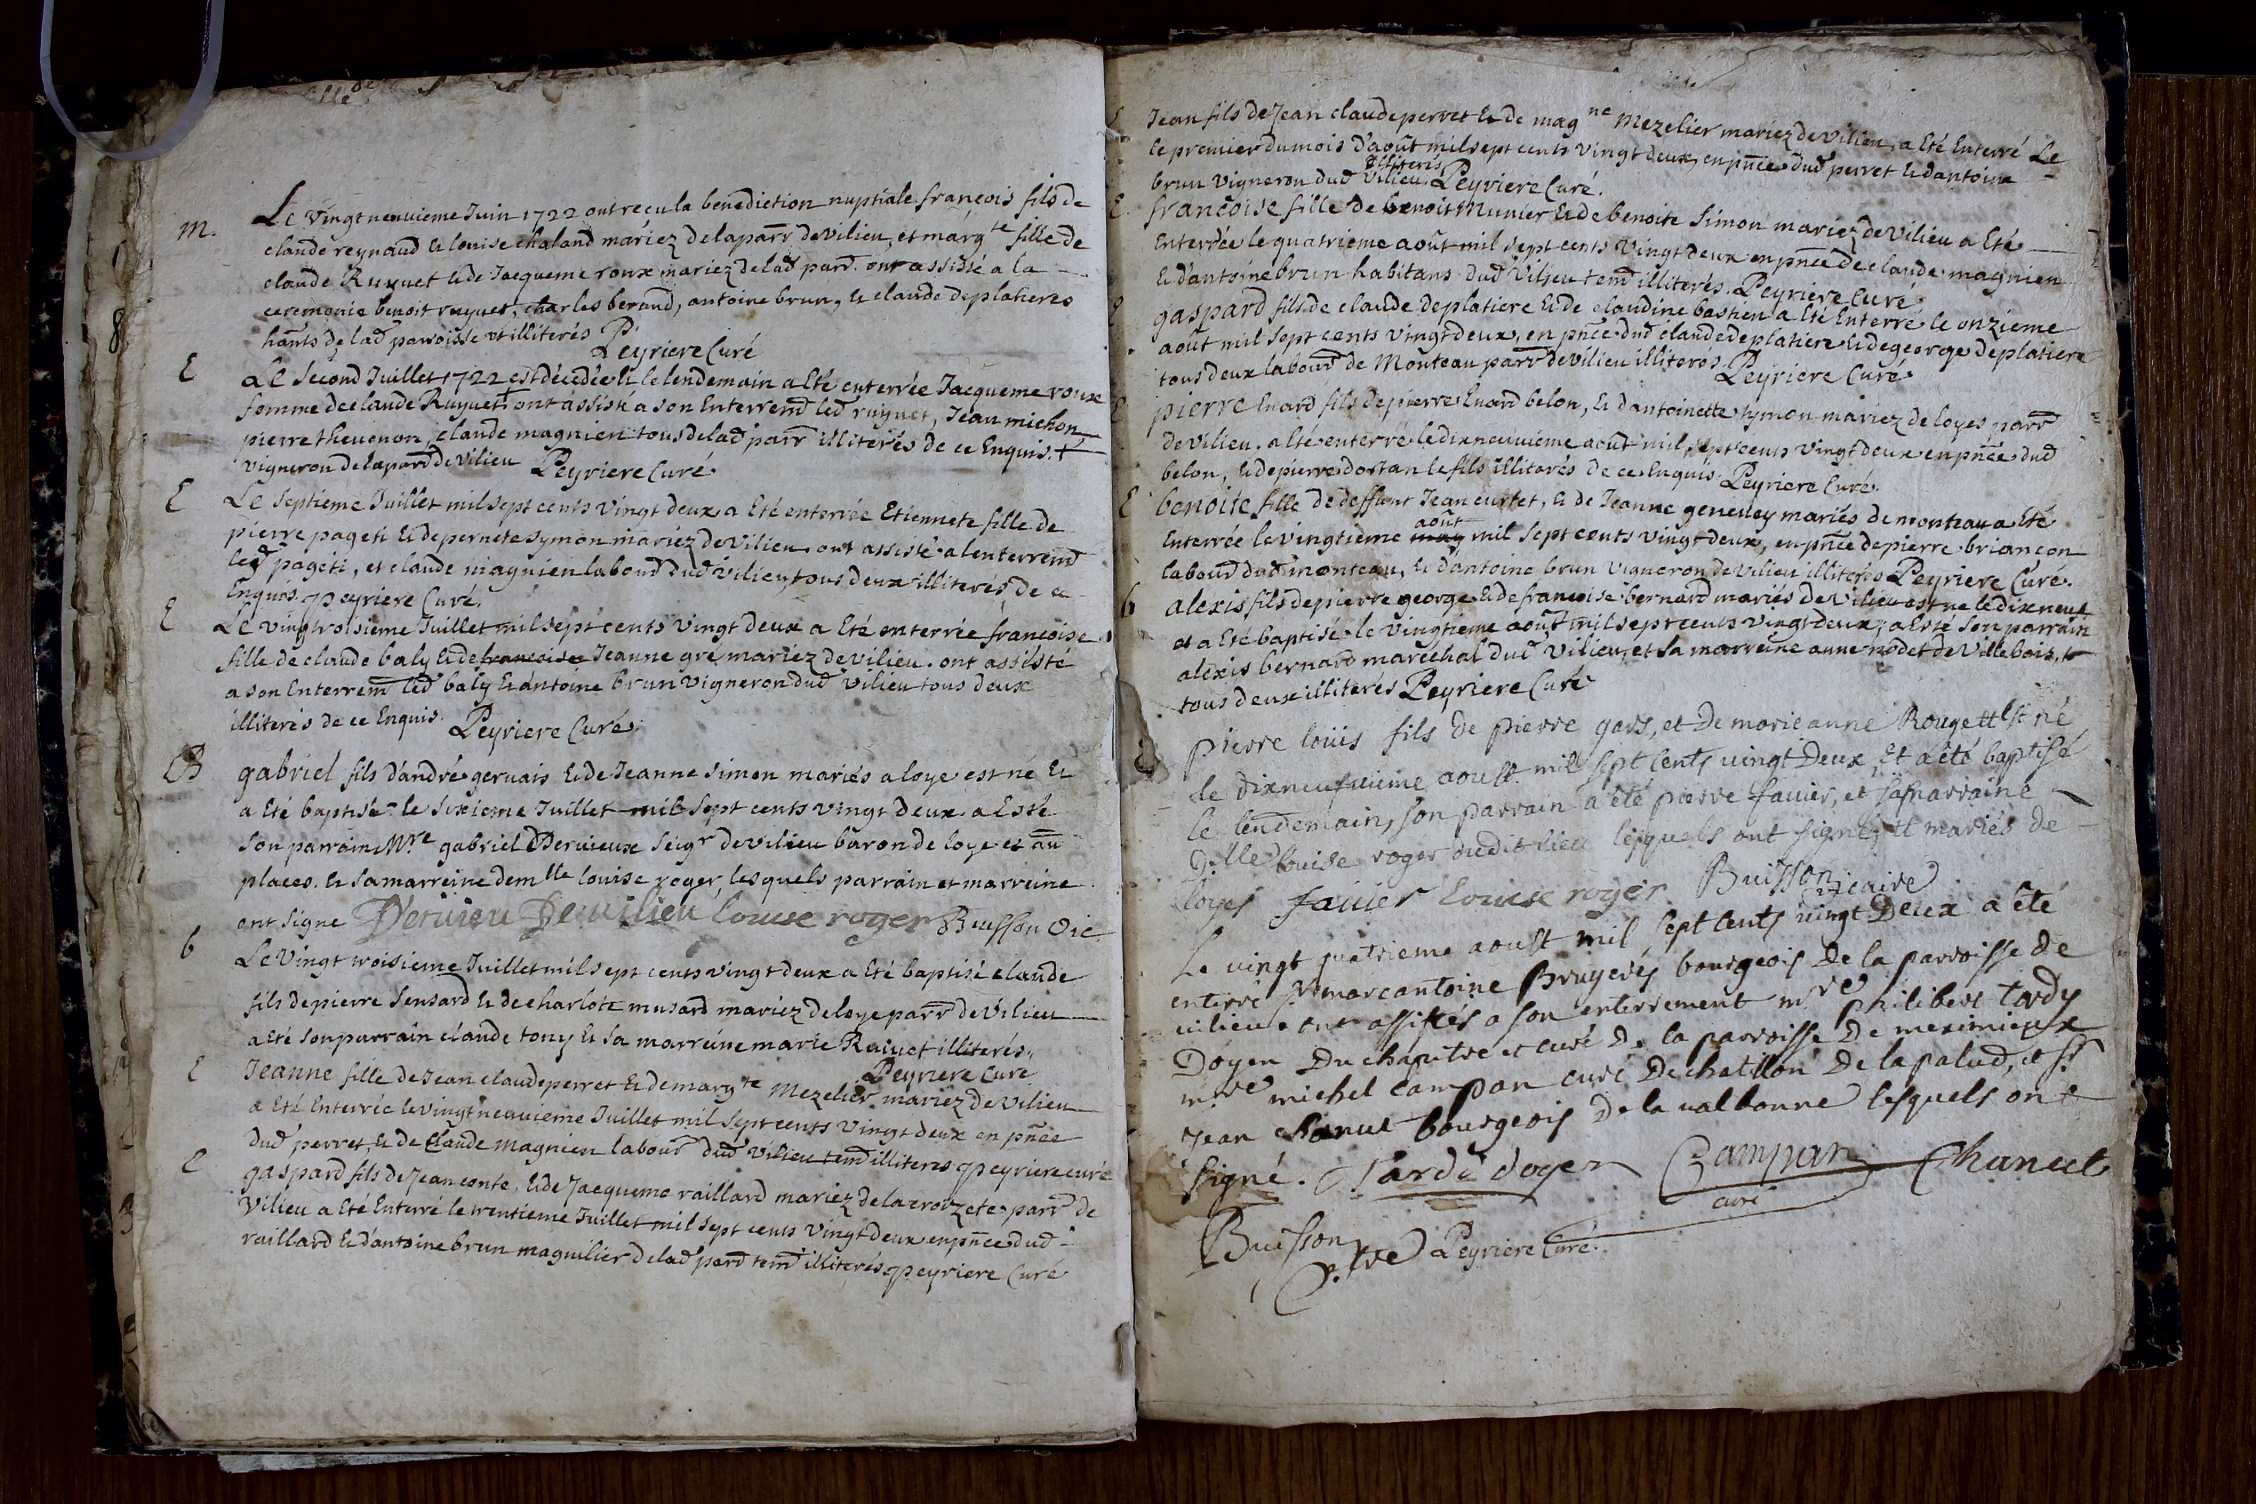 m. Le vingt neuvieme Juin 1722 ont recu la benediction nuptiale françois fils de
claude reynaud & louise chaland mariez de la parr. de vilieu, et margte fille de
claude Ruyuet & de Jacqueme roux mariez de lad parr. ont assisté a la
ceremonie benoit ruyuet, charles beraud, antoine brun, & claude deplatieres
hants de lad parroisse illiterés Peyriere Curé
E Le second Juillet 1722 est décedée & le lendemain a Eté enterrée Jacqueme roux
femme de claude Ruyuet, ont assisté a son Enterremt led ruyuet, Jean michon
pierre theuenon, claude magnien tous de lad parr illiterés de ce Enquis. +
vigneron de la parr de vilieu Peyriere Curé
E Le septieme Juillet mil sept cents vingt deux a Eté enterrée Etiennete fille de
pierre pageti & de pernete symon mariez de vilieu ont assisté a lenterremt
led pageti, et claude magnien labour dud vilieu, tous deux illiterés, de ce
Enquis. Peyriere Curé.
E Le vingtroisieme Juillet mil sept cents vingt deux a Eté enterrée francoise
fille de claude baly & de francoise Jeanne gre mariez de vilieu. ont assisté
a son Enterrem led baly & antoine brun vigneron dud vilieu tous deux
illiterés de ce Enquis. Peyriere Curé.
B gabriel fils d'andré gervais & de Jeanne simon mariés a loye est né &
a Eté baptisé le sixieme Juillet mil sept cents vingt deux a Esté
son parrain Mre gabriel Dervieux seigr de vilieu baron de loye et au
places. & sa marreine demlle louise roger, lesquels parrain et marreine
ont signe Dervieu De vilieu louise roger Buisson vic.
b Le Vingt troisieme Juillet mil sept cents vingt deux a Eté baptisé claude
fils de pierre sensard & de charlote musard mariez de loye parr de vilieu
a Eté son parrain claude tony & sa marreine marie Raiuet illiterés
Peyriere Curé
E Jeanne fille de Jean claude perret & de margte Mezelier mariez de vilieu
a Eté Enterrée le vingt neuvieme Juillet mil sept cents vingt deux en pnce
dud perret, & de claude magnien labour dud vilieu tem illiteres Peyriere curé
E gaspard fils de Jean conte, & de Jacqueme raillard mariez de la croizete parr de
Vilieu a Eté Enterré le trentieme Juillet mil sept cents vingt deux en pnce dud
raillard & d'antoine brun maguilier de lad parr tem illiterés Peyriere Curé
Jean fils de Jean claude perret & de magne Mezelier mariez de vilieu, a Eté Enterré Le
le premier du mois d'août mil sept cents vingt deux, en pnce dud perret & d'antoine
illiterés
brun vigneron dud vilieu. Peyriere Curé.
E. françoise fille de benoit Munier & de benoite simon mariez de vilieu a Eté
Enterrée le quatrieme août mil sept cents vingt deux en pnce de claude magnien
& d'antoine brun habitans dud vilieu tem illiterés. Peyriere Curé
gaspard fils de claude deplatiere & de claudine bastien a Eté Enterré le onzieme
août mil sept cents vingt deux, en pnce dud claude deplatiere & de george deplatiere
tous deux labour de Monteau parr de vilieu illiteres. Peyriere Curé
pierre Euard fils de pierre Euard belon, & d'antoinette symon mariez de loyes parr
de vilieu. a Eté enterré le dixneuvieme août mil sept cents vingt deux en pnce dud
belon, & de pierre dortan le fils illiterés de ce Enquis Peyriere Curé.
E benoite fille de deffunt Jean curtet, & de Jeanne geneuey mariés de monteau a Eté
aout
Enterrée le vingtieme may mil sept cents vingt deux, en pnce de pierre briancon
labour dud monteau, & d'antoine brun vigneron de vilieu illiterés Peyriere Curé.
b alexis fils de pierre george & de francoise bernard mariés de vilieu est ne le dixneuf
et a Eté baptisé le vingtieme août mil sept cents vingt deux; a Esté son parrain
alexis bernard maréchal dud vilieu, et sa marreine anne nodet de villebois, +
tous deux illiterés Peyriere Curé
pierre loüis fils de pierre gars, et de marie anne Rougett Est né
le dixneufuieme aoust mil sept cents vingt Deux et a été baptisé
le lendemain, son parrain a été pierre fauier, et sa marraine
Dlle louise roger dudit lieu lesquels ont signé, tt mariés de
loyes fauier Louise roger. Buisson vicaire
Le vingt quatrieme aoust mil sept cents vingt Deux a été
enterré sr marcantoine Bruyeres bourgeois de la parroisse de
vilieu ont assistés a son enterrement mre philibert tardy
Doyen Du chapitre et curé De la parroisse De meximieux
mre michel Campan curé De chatillon De la palud, et sr
Jean Chanut bourgeois De la valbonne lesquels ont
signé. Tardi doyen Campan Chanut
curé
Buisson Peyriere Curé.
vre